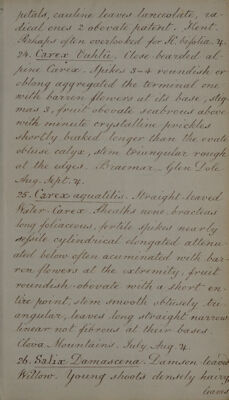 petals, cauline leaves lanceolate, ra-
dical ones 2 obovate patent. Kent.
Perhaps often overlooked for H. bifolia. 4.
24. Carex Vahlii. Close bearded al-
pine Carex. Spikes 3-4 roundish or
oblong aggregated the terminal one
with barren flowers at its base, stig-
mas 3, fruit obovate scabrous above
with minute crystalline prickles
shortly beaked longer than the ovate
obtuse calyx, stem triangular rough
at the edges. Braemar, Glen Dole
Aug. Sept. 4.
25. Carex aquatilis. Straight leaved
Water-Carex. Sheaths none, bracteas
long foliaceous, fertile spikes nearly
sessile cylindrical elongated attenu-
ated below often acuminated with bar-
ren flowers at the extremity, fruit
roundish-obovate with a short en-
tire point, stem smooth obtusely tri-
angular, leaves long straight narrow
linear not fibrous at their bases.
Clova Mountains. July Aug. 4.
26. Salix Damascena. Damson leaved
Willow. Young shoots densely hairy,
leaves